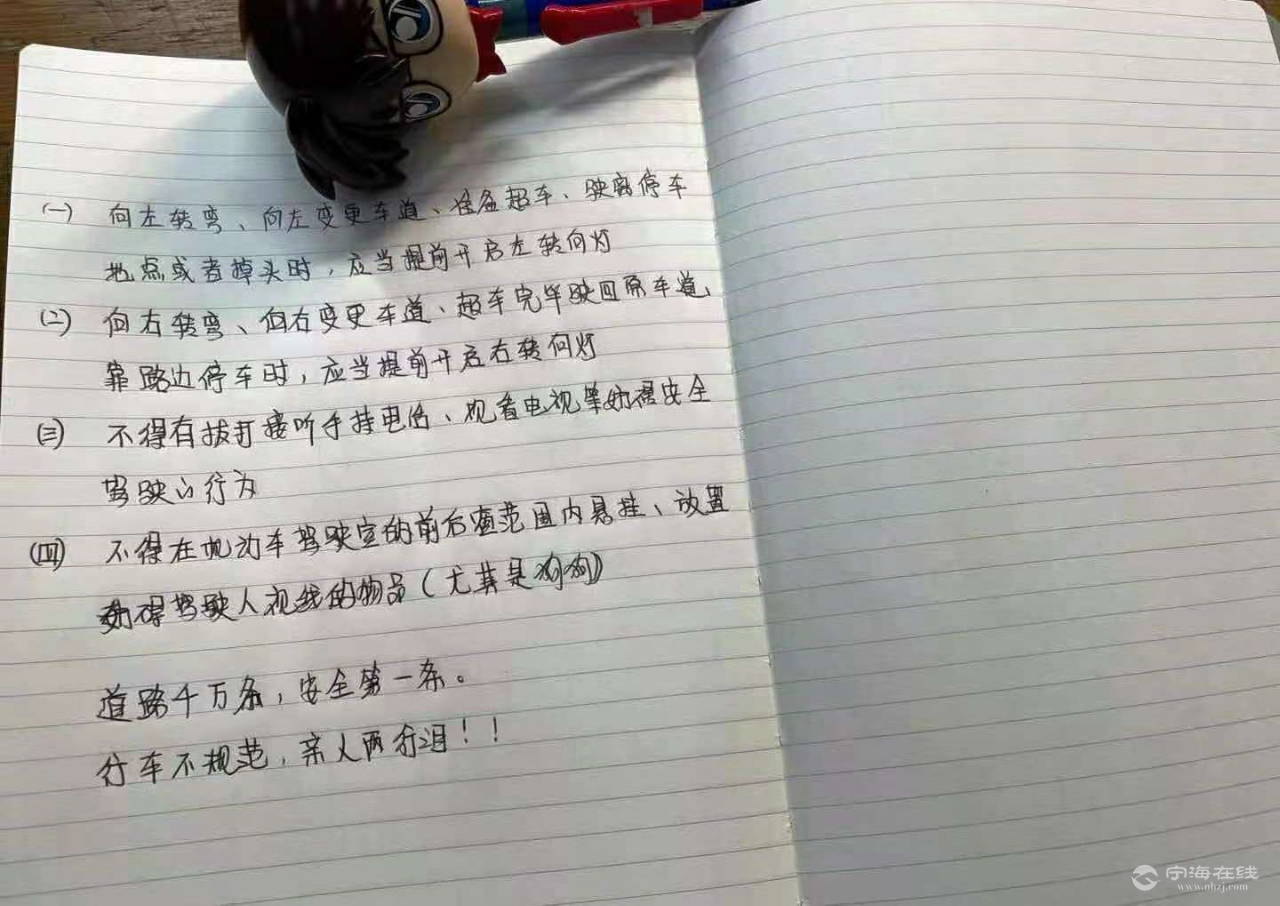 (一) 向左转弯、向左变更车道、准备超车、驶离停车
地点或者掉头时，应当提前开启左转向灯
(二) 向右转弯、向右变更车道、超车完毕驶回原车道、
靠路边停车时，应当提前开启右转向灯
(三) 不得有拔打接听手持电话、观看电视等妨碍安全
驾驶的行为
(四) 不得在机动车驾驶室的前后窗范围内悬挂、放置
妨碍驾驶人视线的物品(尤其是狗狗)
道路千万条，安全第一条。
行车不规范，亲人两行泪！！
宁海在线
www.nhzj.com